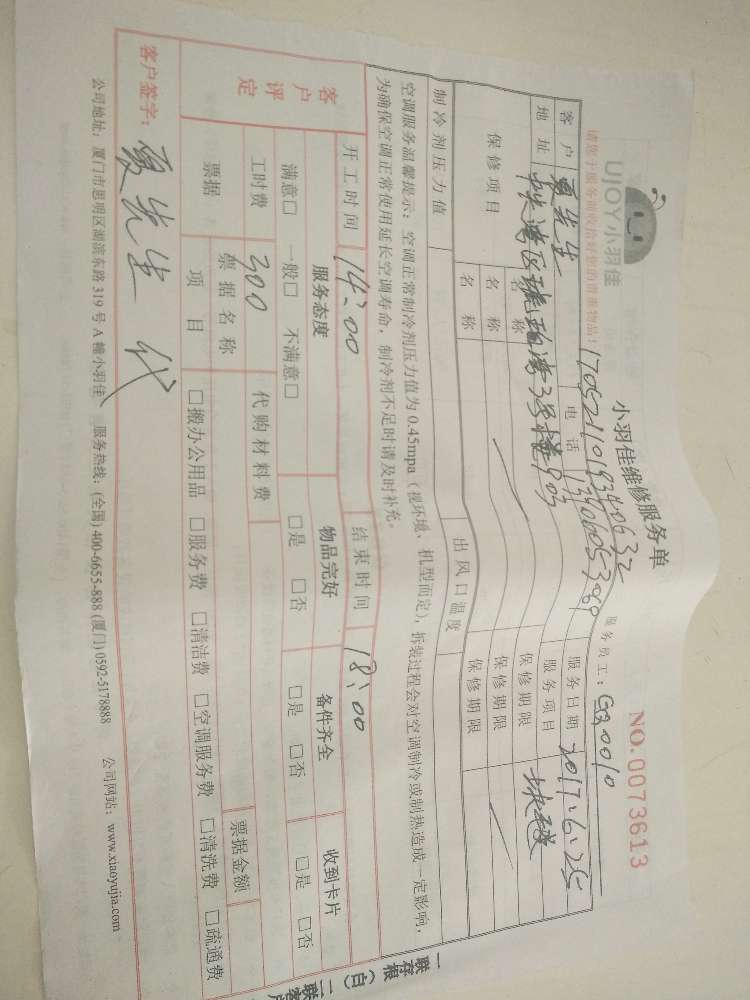 UJOY小羽佳
小羽佳维修服务单
NO.0073613
请您于服务前收拾好您的贵重物品!
1705211019340632
服务员工:G20010
客户 夏先生 电话 13406053069 服务日期 2017.6.25
地址 湾3号楼903 服务项目
保修项目 名称 保修期限
名称 保修期限
名称 保修期限
制冷剂压力值 出风口温度
空调服务温馨提示:空调正常制冷剂压力值为0.45mpa(视环境、机型而定),拆装过程会对空调制冷或制热造成一定影响,
为确保空调正常使用延长空调寿命,制冷剂不足时请及时补充。
开工时间 14:00 结束时间 18:00
客户评定 服务态度 物品完好 备件齐全 收到卡片
满意□ 一般□ 不满意□ □是 □否 □是 □否 □是 □否
工时费 300 代购材料费
票据 票据名称 票据金额
项目 □搬办公用品 □服务费 □清洁费 □空调服务费 □清洗费 □疏通费
客户签字: 夏先生 代
公司地址:厦门市思明区湖滨东路319号A幢小羽佳 服务热线:(全国)400-6655-888(厦门)0592-5178888 公司网站:www.xiaoyujia.com
一联存根(白)二联客户